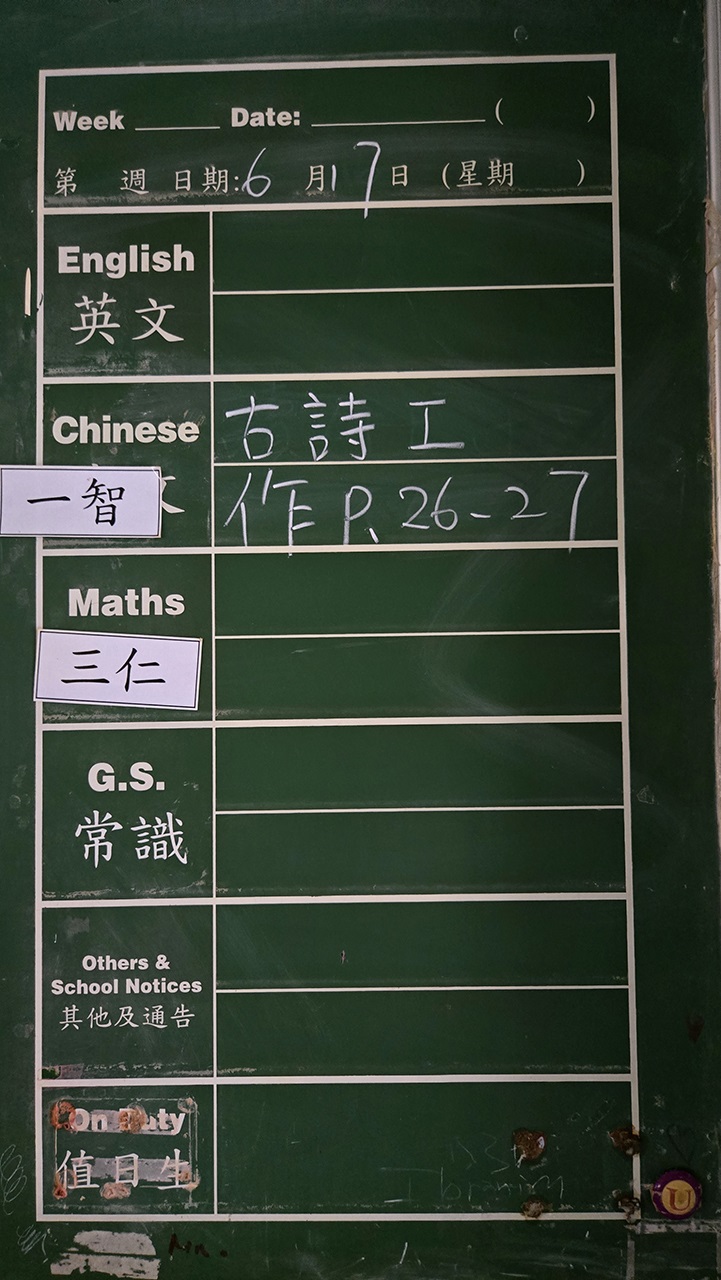 Week ______ Date: ______________ ( )
第 週 日期:6 月17日 (星期 )
English
英文
Chinese
古詩工
作P.26-27
一智
Maths
三仁
G.S.
常識
Others &
School Notices
其他及通告
On Duty
值日生
U